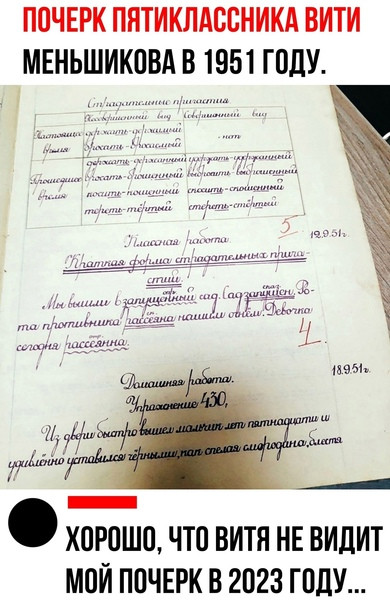 ПОЧЕРК ПЯТИКЛАССНИКА ВИТИ
МЕНЬШИКОВА В 1951 ГОДУ.
Страдательные причастия
Несовершенный вид Совершенный вид
Настоящее время
держать-держимый
бросать-бросаемый
-нет
Прошедшее время
держать-держанный удержать-удержанный
бросать-брошенный выбросить-выброшенный
носить-ношенный сносить-сношенный
тереть-тёртый стереть-стёртый
5
Классная работа. 12.9.51г.
Краткая форма страдательных прича-
стий.
опр. сказ.
Мы вышли в запущенный сад. Сад запущен. Ро-
та противника рассеяна нашим огнём. Девочка
сегодня рассеянна.
4
Домашняя работа. 18.9.51г.
Упражнение 430,
Из двери быстро вышел мальчик лет пятнадцати и
удивлённо уставился чёрными, как спелая смородина, блестя
ХОРОШО, ЧТО ВИТЯ НЕ ВИДИТ
МОЙ ПОЧЕРК В 2023 ГОДУ...